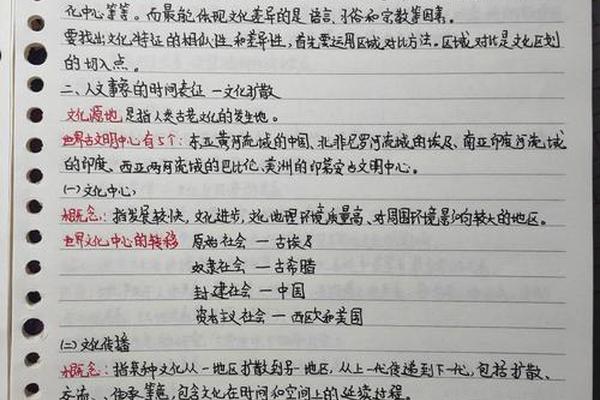 化中心等等。而最能体现文化差异的是语言、习俗和宗教等因素。
要找出文化特征的相似性和差异性，首先要运用区域对比方法。区域对比是文化区划
的切入点。
二、人文事象的时间表征—文化扩散
文化源地是指人类古老文化的发生地。
世界古文明中心有5个：东亚黄河流域的中国、北非尼罗河流域的埃及、南亚印度河流域
的印度、西亚两河流域的巴比伦、美洲的印第安古文明中心。
(一)文化中心
概念：指发展较快，文化进步，文化地理环境质量高、对周围环境影响较大的地区。
世界文化中心的转移 原始社会—古埃及
奴隶社会—古希腊
封建社会—中国
资本主义社会—西欧和美国
(二)文化传播
概念：指某种文化从一地区扩散到另一地区，从上一代传递到下一代，包括扩散、
交流、传承等意，包含文化在时间和空间上的延续过程。